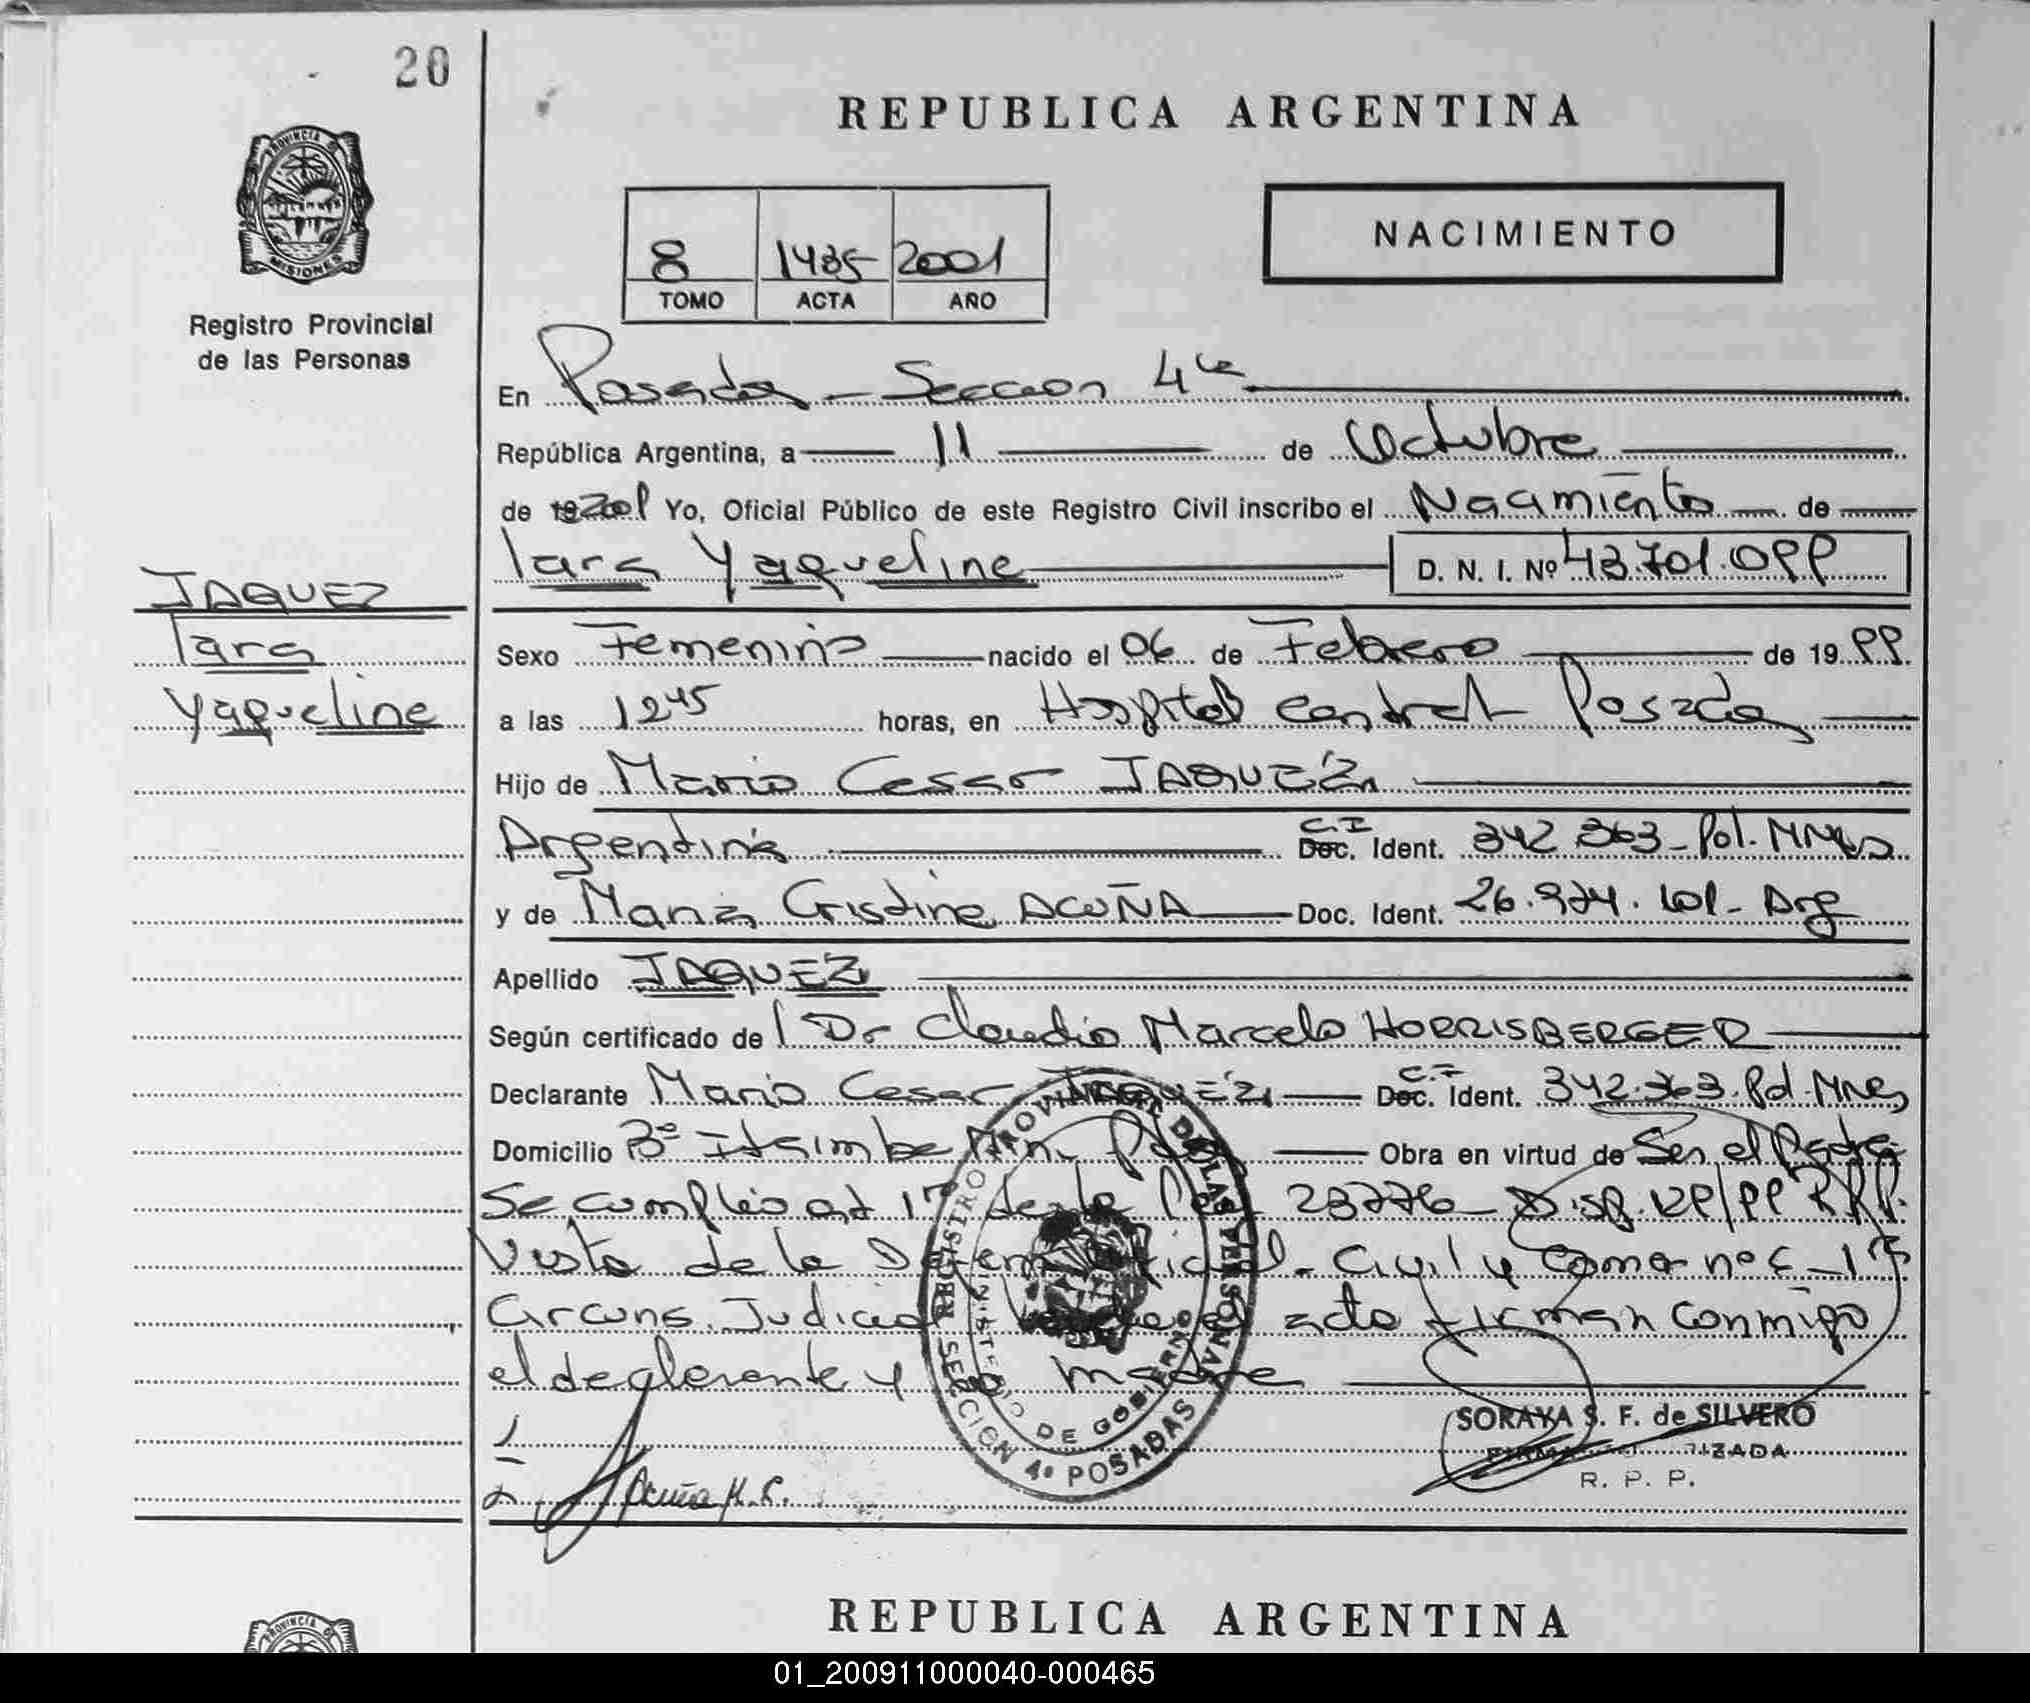 20
REPUBLICA ARGENTINA
PROVINCIA DE
MISIONES
Registro Provincial
de las Personas
8 1435 2001
TOMO ACTA AÑO
NACIMIENTO
En Posadas - Seccion 4ta
República Argentina, a 11 de Octubre
de 2001 Yo, Oficial Público de este Registro Civil inscribo el Nacimiento de
Iara Yaqueline D. N. I. Nº 43.701.099
JAQUEZ
Iara
Yaqueline
Sexo Femenino nacido el 06 de Febrero de 1999.
a las 12 45 horas, en Hospital Central Posadas
Hijo de Mario Cesar JAQUEZ
Argentina C.I Doc. Ident. 342 363 - Pol. Mnes
y de Maria Cristina ACUÑA Doc. Ident. 26.974.101 - Arg
Apellido JAQUEZ
Según certificado de l Dr Claudio Marcelo HORRISBERGER
Declarante Mario Cesar JAQUEZ C.I Doc. Ident. 342.363. Pol. Mnes
Domicilio Bº Itaimbe Mini Pdas Obra en virtud de Ser el Padre
Se cumplio art 1º de la 23776 - Disp. 12/99 R.P.P.
Vista de la Oficial - Civil y Comer nº 6 - 1ra
Circuns. Judicial acto firman conmigo
el declarante y la madre
Acuña M. C.
REGISTRO PROVINCIAL DE LAS PERSONAS
MINISTERIO DE GOBIERNO
SECCION 4º POSADAS
SORAYA S. F. de SILVERO
FIRMA AUTORIZADA
R. P. P.
REPUBLICA ARGENTINA
PROVINCIA DE
01_200911000040-000465